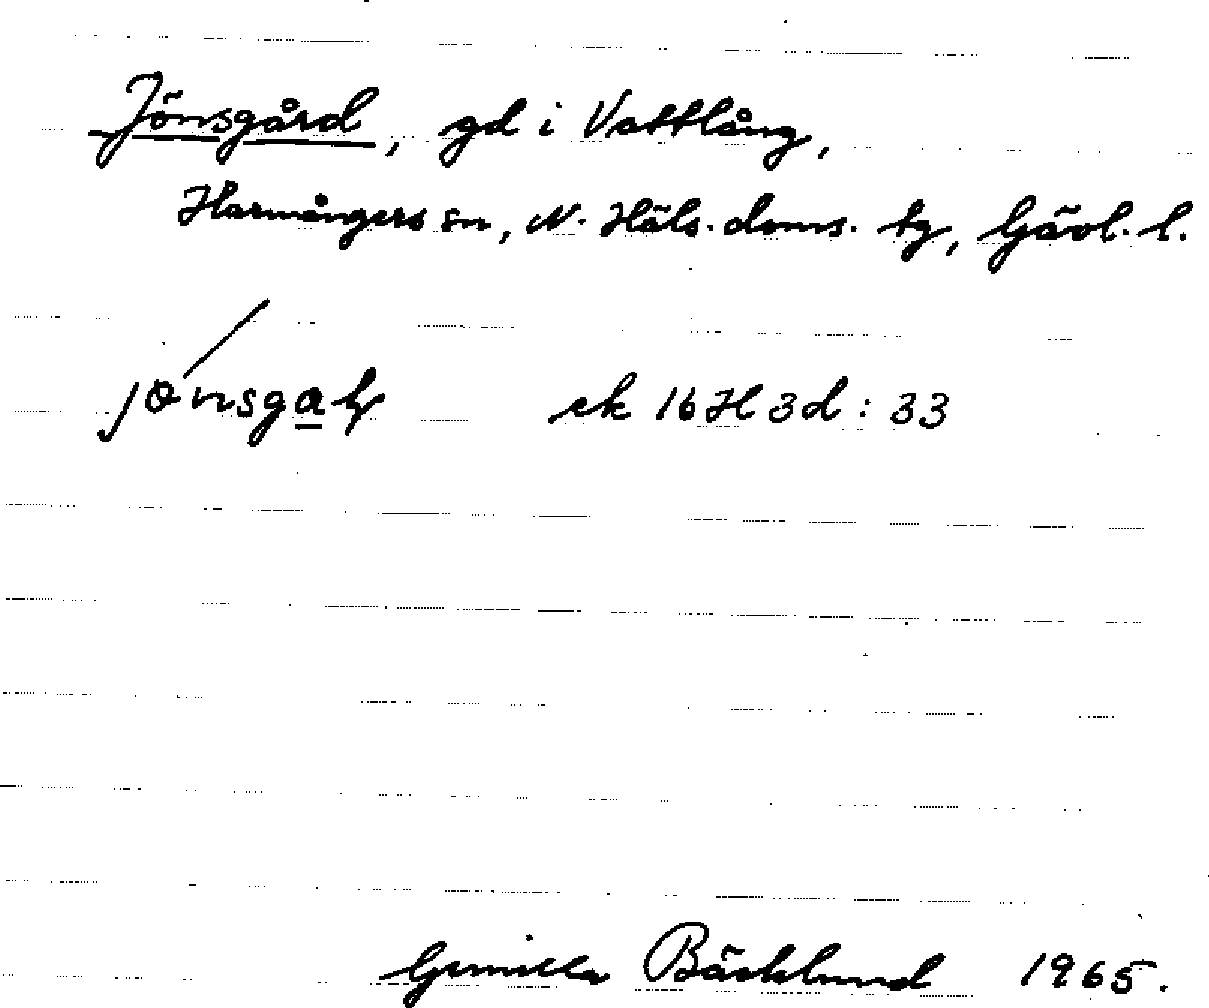 Jönsgård, gd i Vattlång,
Harmångers sn, N. Häls. doms. tg, Gävl. l.
ek 16 H 3d : 33
Gunilla Bäcklund 1965.